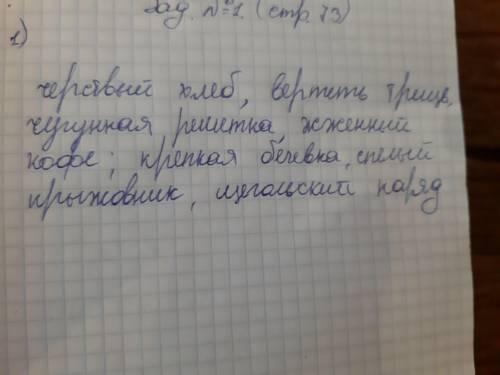 Зад. №1. (стр. 73)
1)
черствый хлеб, вертеть
чугунная решетка, жженний
кофе; крепкая бечевка, спелый
крыжовник, щегольский наряд